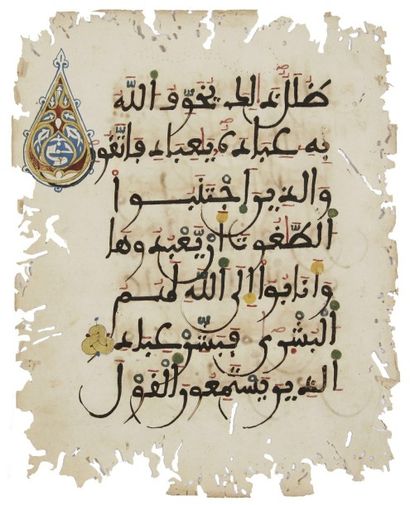 ظلل ذلك يخوف الله
به عباده يعباد فاتقون
والذين اجتنبوا
الطغوت أن يعبدوها
وأنابوا إلى الله لهم
البشرى فبشر عباد
الذين يستمعون القول